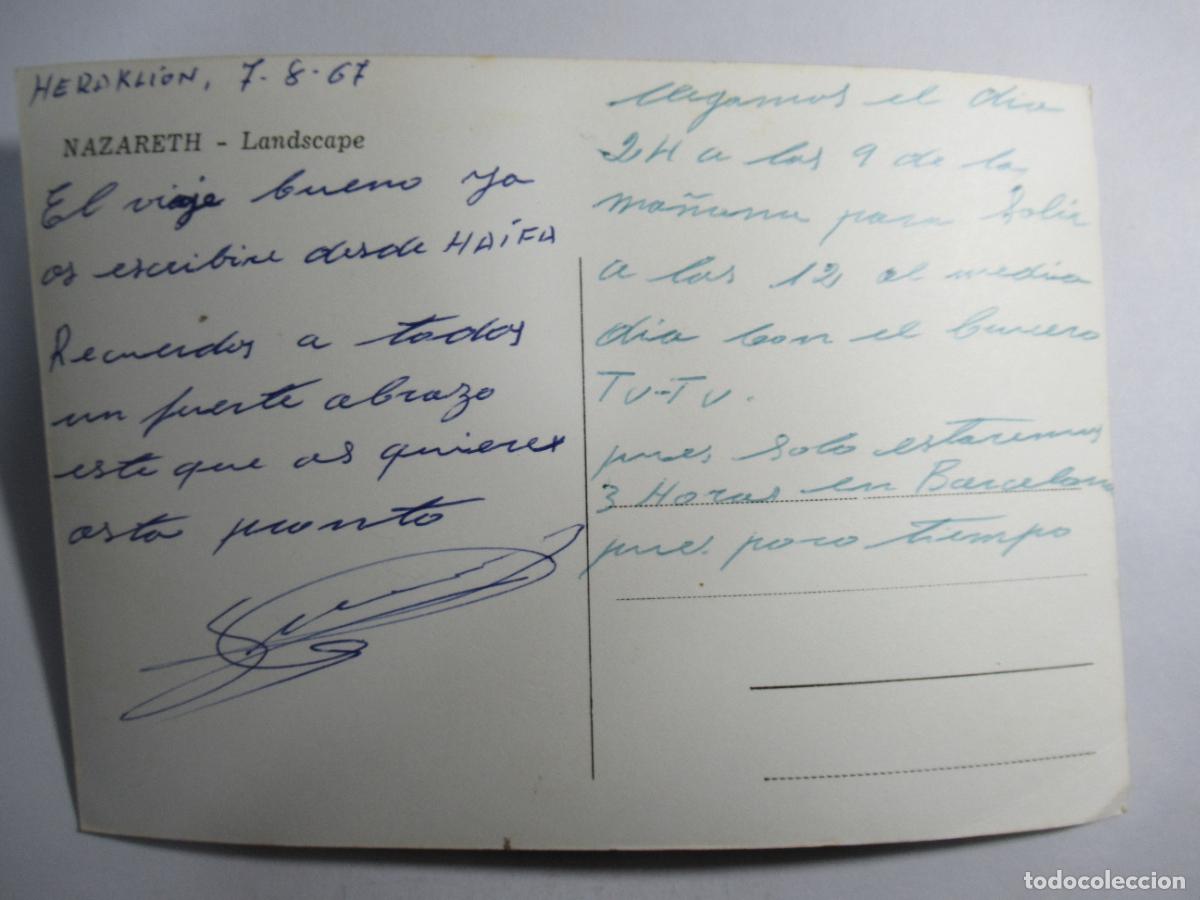 HERAKLION, 7-8-67
NAZARETH - Landscape
El viaje bueno ya
os escribire desde HAIFA
Recuerdos a todos
un fuerte abrazo
este que os quierex
asta pronto
llegamos el dia
24 a las 9 de la
mañana para Salir
a las 12 al medio
dia con el
TU-TU.
pues solo estaremos
3 Horas en Barcelona
pues poco tiempo
todocoleccion